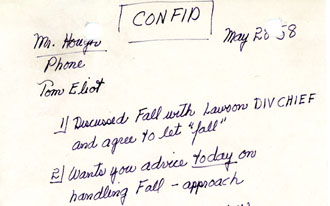 CONFID
May 28 58
Mr.
Phone
Tom Eliot
1) Discussed Fall with Lawson DIV CHIEF
and agree to let "fall"
2) Wants you advice today on
handling Fall - approach